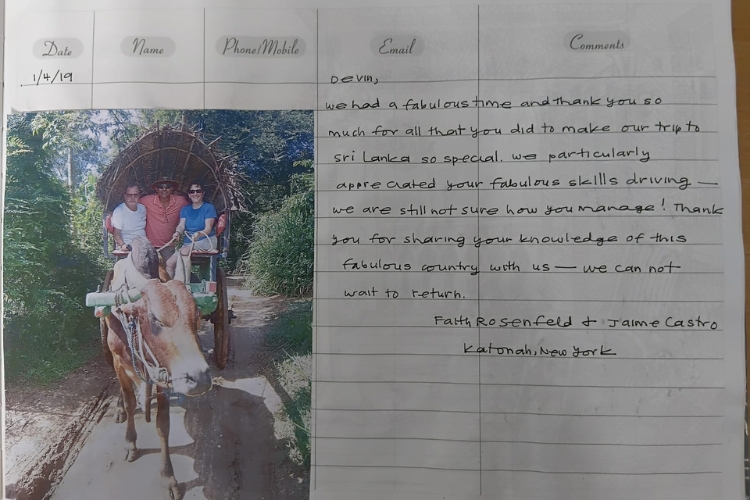 Date Name Phone/Mobile Email Comments
1/4/19
Devin,
we had a fabulous time and thank you so
much for all that you did to make our trip to
sri Lanka so special. we particularly
appreciated your fabulous skills driving —
we are still not sure how you manage! Thank
you for sharing your knowledge of this
fabulous country with us — we can not
wait to return.
Faith Rosenfeld & Jaime Castro
Katonah, New York